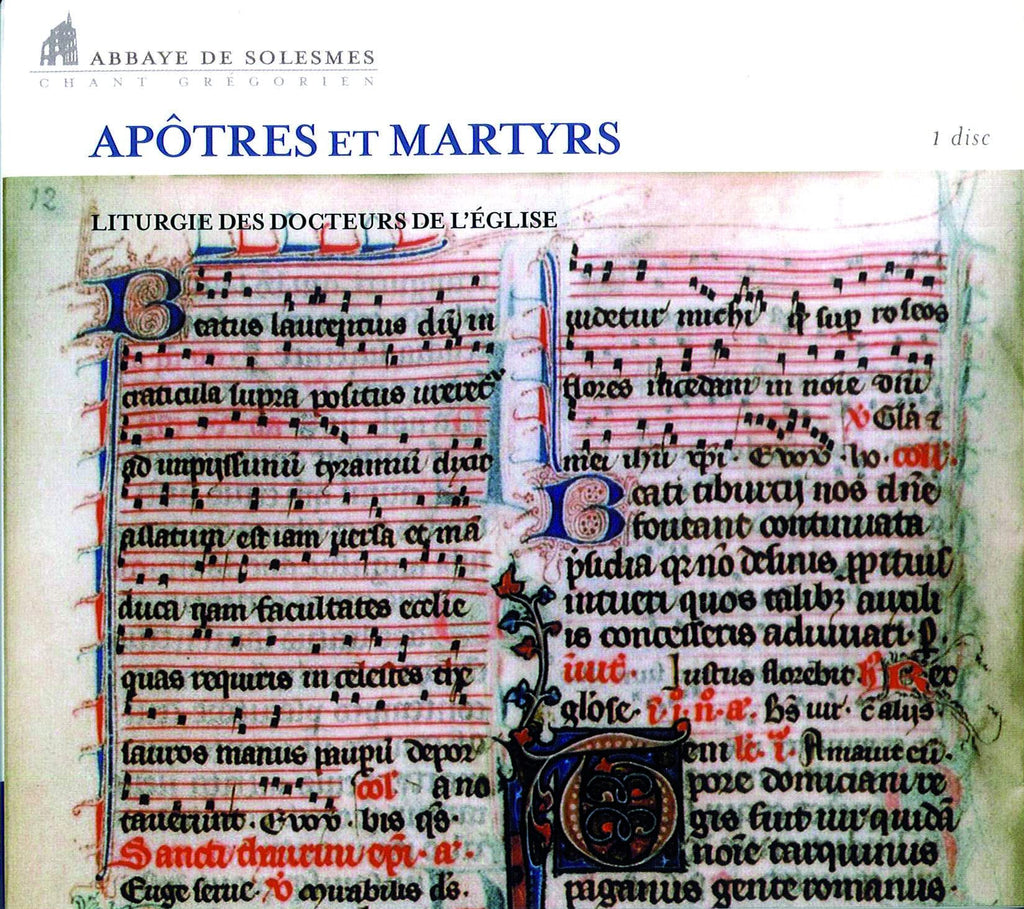 ABBAYE DE SOLESMES
CHANT GRÉGORIEN
APÔTRES ET MARTYRS
1 disc
12
LITURGIE DES DOCTEURS DE L'ÉGLISE
Beatus laurentius dū in
craticula supra positus ureret
ad impijssimū tyrannū dixit
assatum est iam versa et mā
duca nam facultates ecclie
quas requiris in celestes the
sauros manus paupū depor
col a no
taverunt. Evov. bis qs.
Sancti
Euge serve. mirabilis ds.
videtur michi super roseos
flores incedam in noie dnī
Glā
mei ihū xpi. Evov. coll.
Beati tiburcij nos dne
foveant continuata
psidia qr nō desinis ppitius
intueri quos talibz auxili
is concesseris adiuvari. P.
Iustus florebit Rex
glōse.
Tem
pore domiciani re
gis fuit vir quidā
noīe tarquinus
paganus gente romanus.